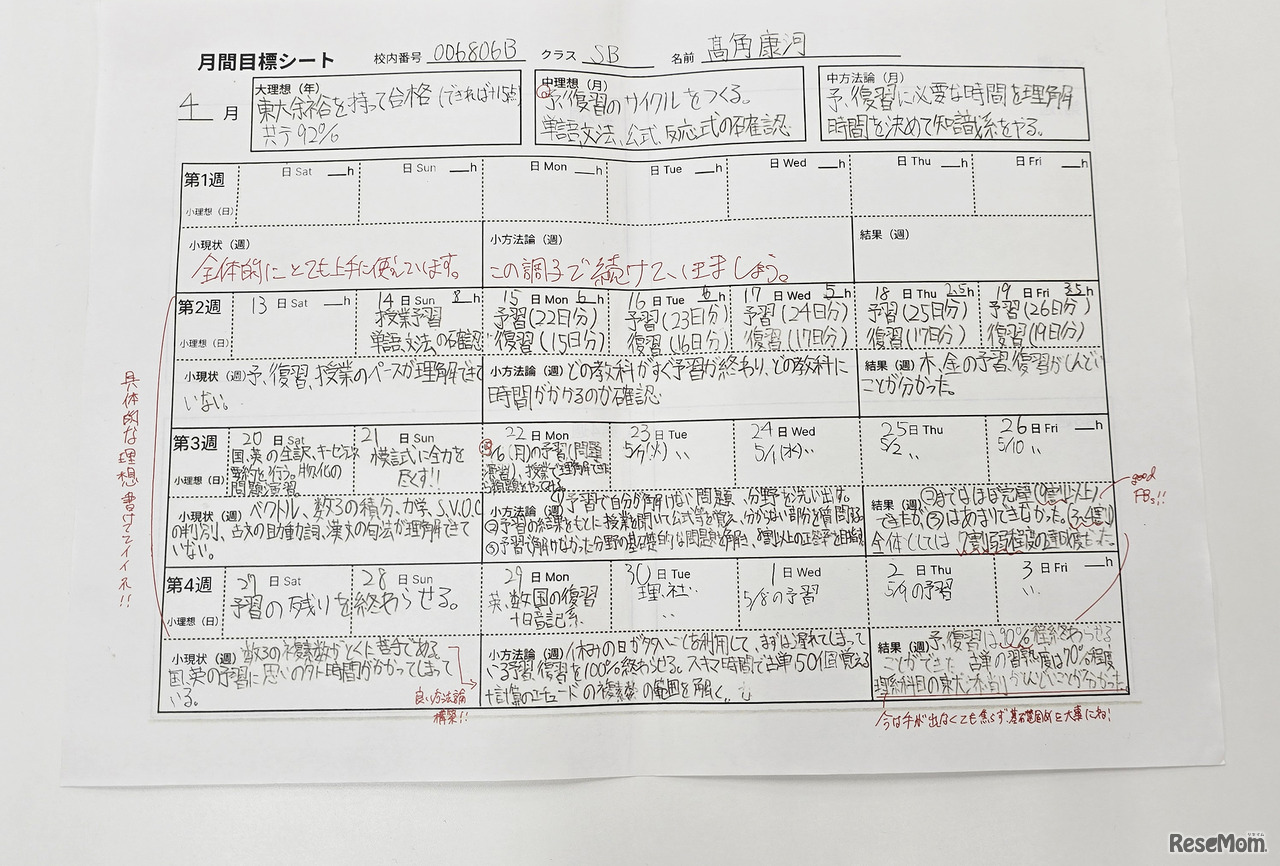 月間目標シート 校内番号 006806B クラス SB 名前 髙角康河
4月
大理想（年）
東大余裕を持って合格（できれば+15点）
共テ92%
中理想（月）
予,復習のサイクルをつくる。
単語,文法,公式,反応式の確認
中方法論（月）
予,復習に必要な時間を理解
時間を決めて知識系をやる。
第1週 日 Sat h 日 Sun h 日 Mon h 日 Tue h 日 Wed h 日 Thu h 日 Fri h
小理想（日）
小現状（週）
全体的にとても上手に使えています。
小方法論（週）
この調子で続けていきましょう。
結果（週）
第2週 13日 Sat h 14日 Sun 8h 15日 Mon 6h 16日 Tue 6h 17日 Wed 5h 18日 Thu 2.5h 19日 Fri 3.5h
小理想（日）
授業予習
単語,文法の確認
予習(22日分)
復習(15日分)
予習(23日分)
復習(16日分)
予習(24日分)
復習(17日分)
予習(25日分)
復習(17日分)
予習(26日分)
復習(19日分)
小現状（週）予,復習,授業のペースが理解できて
いない。
小方法論（週）どの教科がすぐ予習が終わり、どの教科に
時間がかかるのか確認
結果（週）木,金の予習,復習がしんどい
ことが分かった。
具体的な理想書けててイイネ!!
第3週 20日 Sat 21日 Sun 22日 Mon 23日 Tue 24日 Wed 25日 Thu 26日 Fri h
小理想（日）
国,英の全訳,キーセンテンス
要約を行う。物,化の
問題演習。
模試に全力を
尽くす!!
5/6(月)の予習(問題
演習),授業で理解
5/7(火) 〃
5/1(水) 〃
5/2 〃
5/10 〃
小現状（週）ベクトル,数3の積分,力学,S.V.O.C
の判別,古文の助動詞,漢文の句法が理解できて
いない。
小方法論（週）①予習で自分が解けない問題、分野が洗い出す。
②予習の結果をもとに授業を聞いて公式等を覚え,分からない部分を質問する。
③予習で解けなかった分野の基礎的な問題を解き、8割以上の正答率を目指す
結果（週）②まではほぼ完璧(9割以上)
できたが、③はあまりできなかった。(3~4割)
全体としては7割弱程度の達成度だった。
good
FBs!!
第4週 27日 Sat 28日 Sun 29日 Mon 30日 Tue 1日 Wed 2日 Thu 3日 Fri h
小理想（日）
予習の残りを終わらせる。
英,数,国の復習
+暗記系
理,社〃
〃
5/8の予習
5/9の予習
〃
小現状（週）数3の複素数がとくに苦手である。
国,英の予習に思いのほか時間がかかってしまって
いる。
小方法論（週）休みの日が多いことを利用して、まずは遅れてしまって
いる予習,復習を100%終わらせる。スキマ時間で古単50個覚える
結果（週）予,復習は90%程終わらせる
ことができた。古単の習熟度は70%程度
理系科目の東大本当にしんどいことが分かった。
良い方法論
構築!!
今は手が出なくても焦らず基礎固めを大事にね!
ReseMom.
リセマム